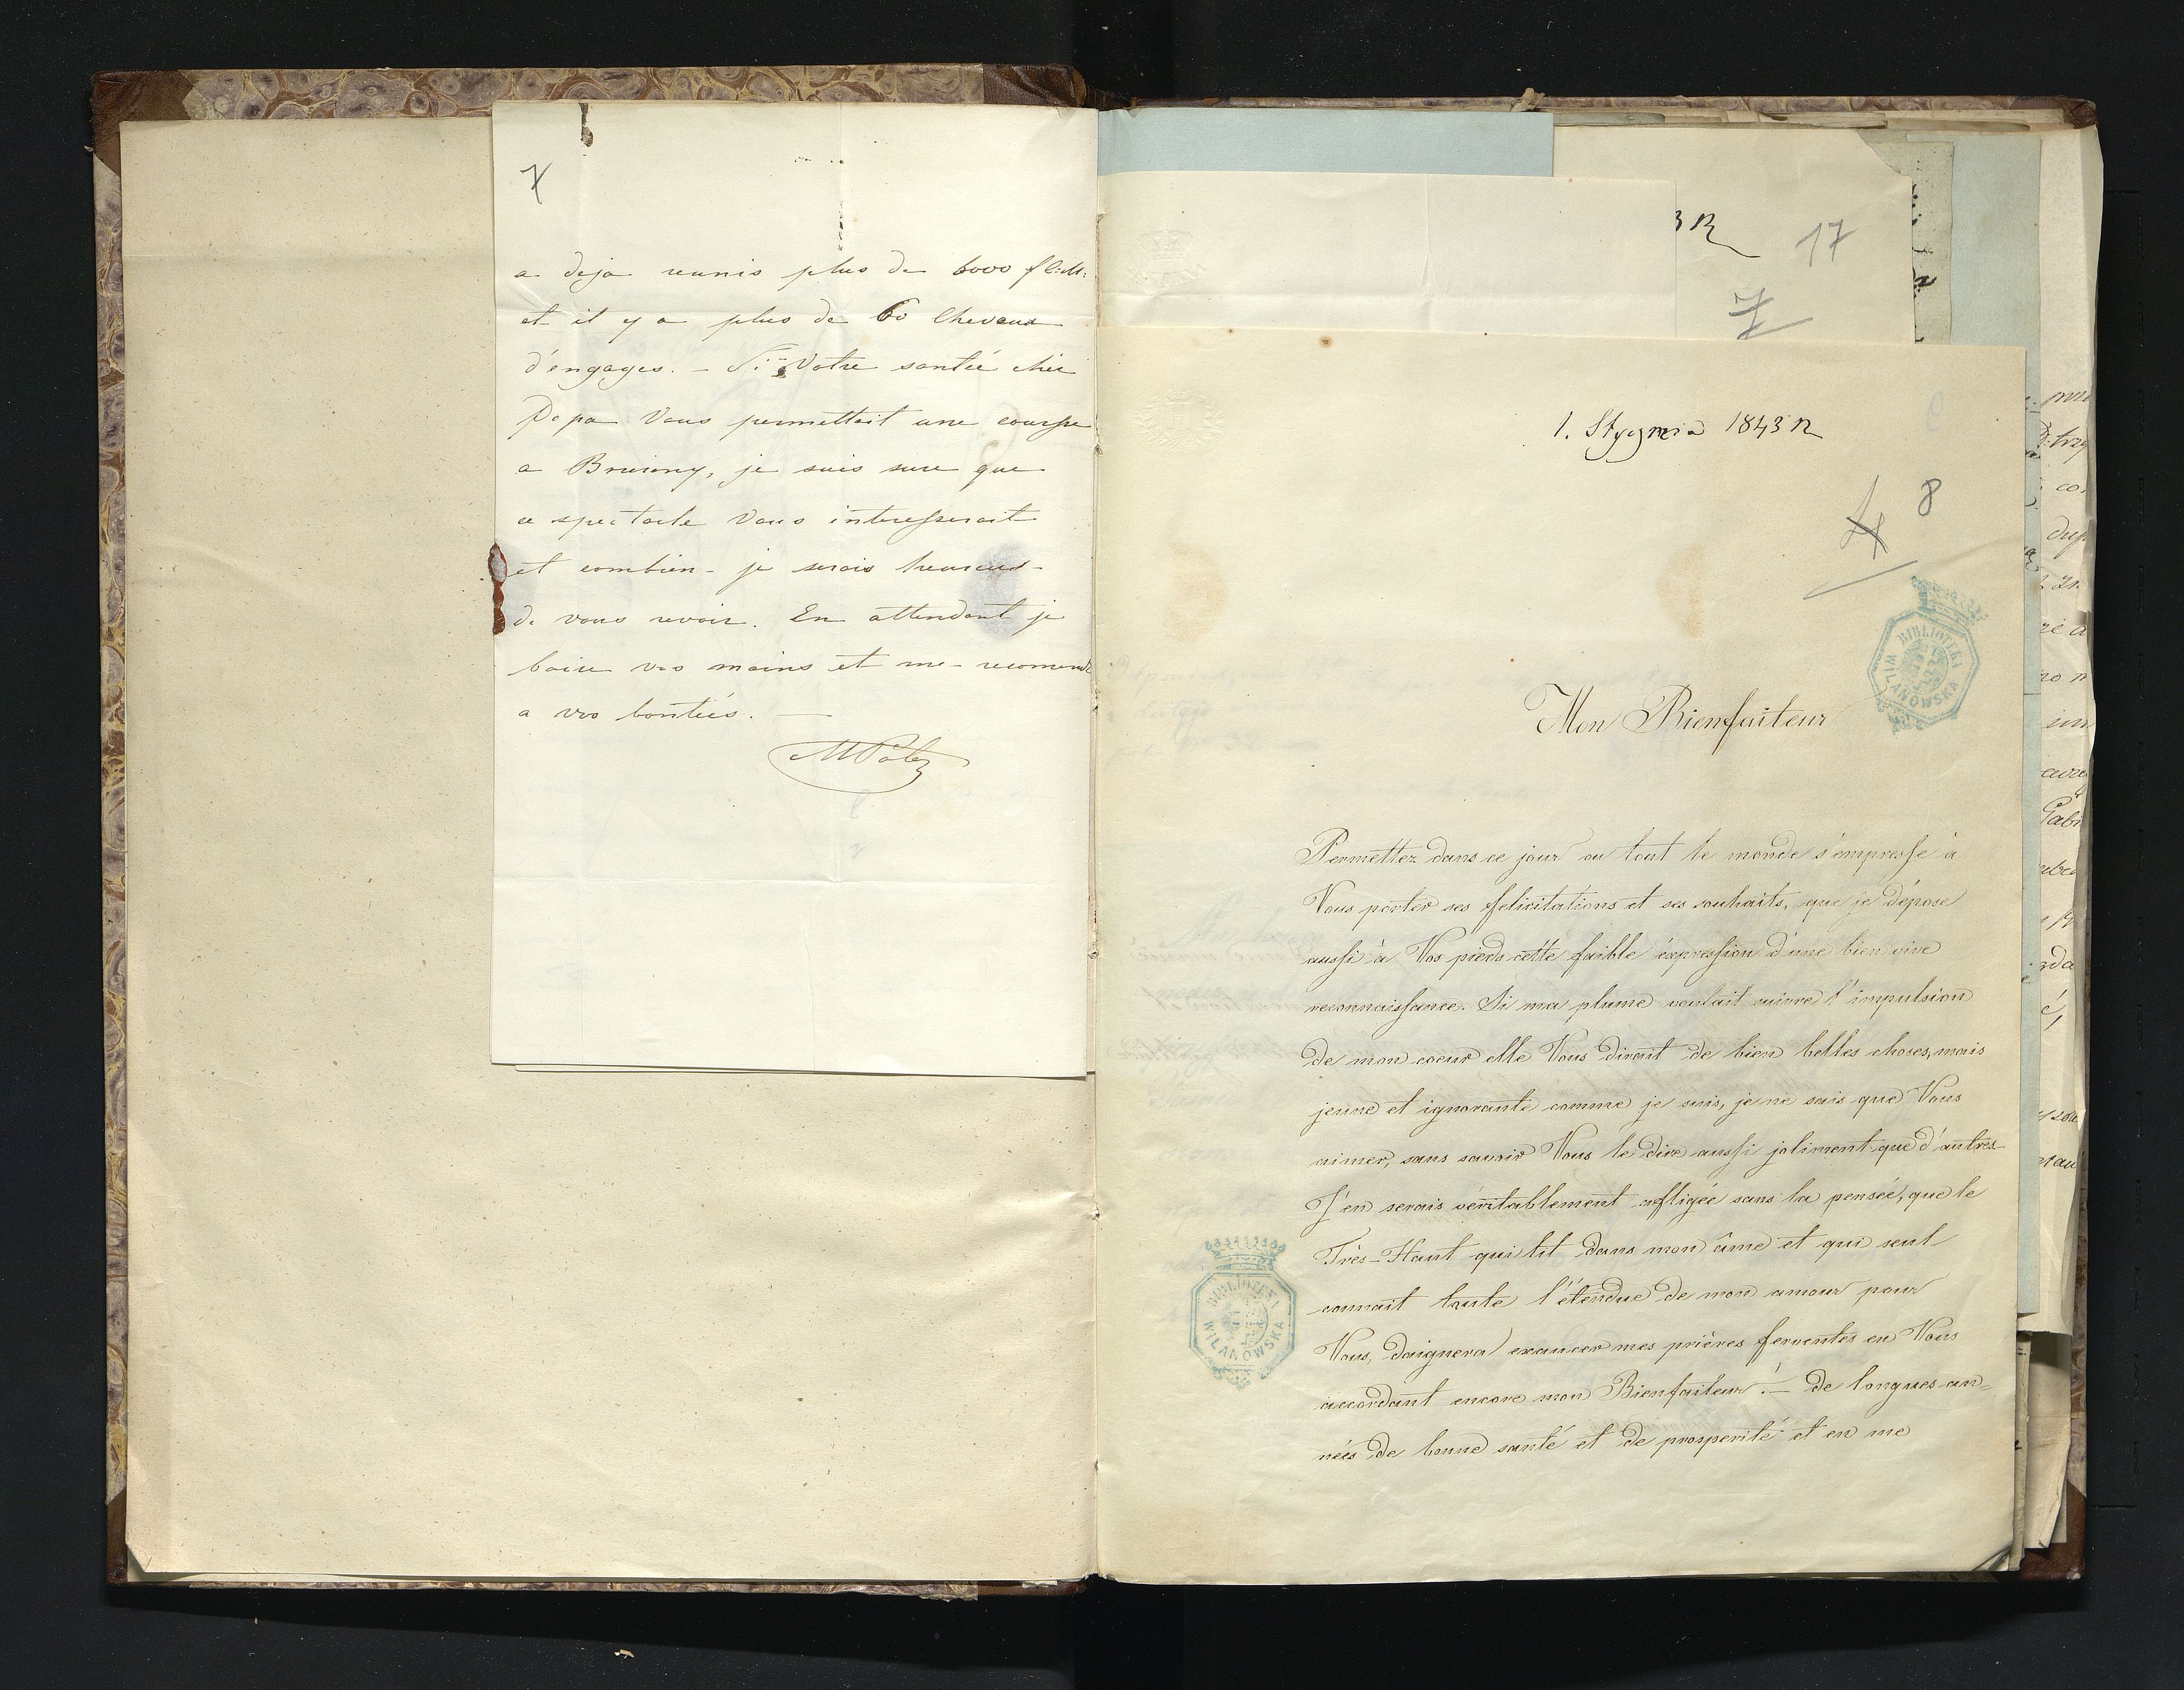 7
a deja reunis plus de 6000 fl:
et il y a plus de 60 Chevaux
d'engages. – Si Votre santée cher
Papa Vous permettait une course
a , je suis sure que
ce spectacle Vous interesserait
et combien – je serais heureux –
de vous revoir. En attendant je
baise vos mains et me – recomende
a vos bontées. —
MPotoz
3 R
17
7
1. Stycznia 1843 R
4 8
BIBLIOTEKA WILANOWSKA
Mon Bienfaiteur
Permettez dans ce jour ou tout le monde s'empresse à
Vous porter ses felicitations et ses souhaits, que je dépose
aussi à Vos pieds cette faible éxpression d'une bien vive
reconnaissance. Si ma plume voulait suivre l'impulsion
de mon coeur elle Vous dirait de bien belles choses, mais
jeune et ignorante comme je suis, je ne sais que Vous
aimer, sans savoir Vous le dire aussi joliment que d'autres
J'en serais véritablement affligée sans la pensée, que le
Très-Haut qui lit dans mon âme et qui seul
connait toute l'étendue de mon amour pour
Vous, daignera exaucer mes prières ferventes en Vous
accordant encore mon Bienfaiteur! – de longues an-
nées de bonne santé et de prosperité et en me
BIBLIOTEKA WILANOWSKA